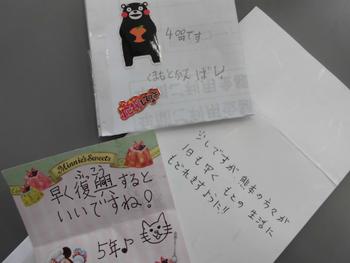 4名です
くまもとがんばし!
Minnie's Sweets
ふっこう
早く復興すると
いいですね!
5年♪
ですが 熊本の方々が
1日も早く もとの 生活に
もどれますように!!